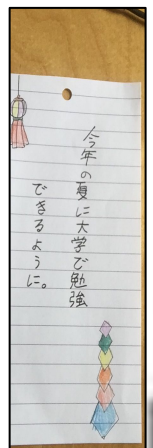 今年の夏に大学で勉強
できるように。